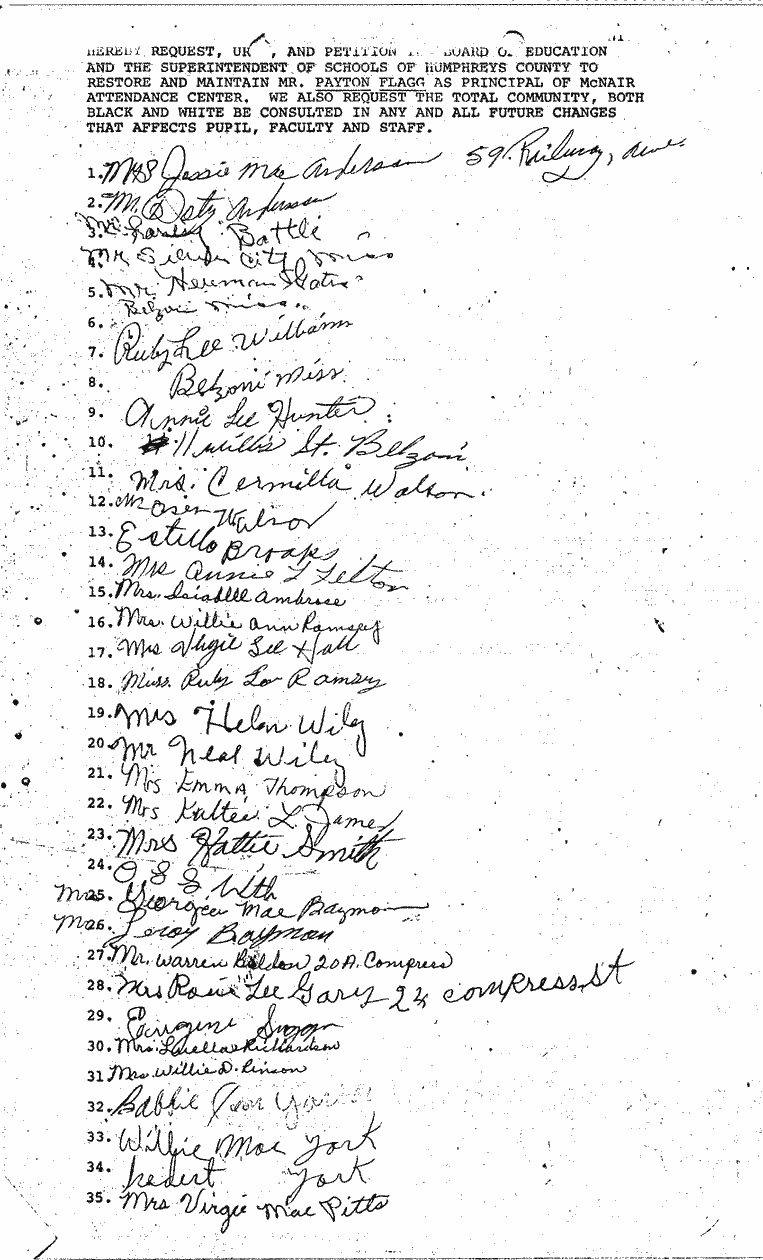 HEREBY REQUEST, UR , AND PETITION BOARD O EDUCATION
AND THE SUPERINTENDENT OF SCHOOLS OF HUMPHREYS COUNTY TO
RESTORE AND MAINTAIN MR. PAYTON FLAGG AS PRINCIPAL OF McNAIR
ATTENDANCE CENTER. WE ALSO REQUEST THE TOTAL COMMUNITY, BOTH
BLACK AND WHITE BE CONSULTED IN ANY AND ALL FUTURE CHANGES
THAT AFFECTS PUPIL, FACULTY AND STAFF.
1. Mrs Jessie Mae Anderson 59. Railway, Ave.
2. M. Anderson
3. Battle
4. Mr, City Miss
5. Mr. Herman Gates
Belzoni Miss.
6.
7. Ruby Lee Williams
8. Belzoni Miss.
9. Annie Lee Hunter
10. #11 Willis St. Belzoni
11. Mrs. Cermilla Walson.
12. Walson
13. Broaps
14. Mrs Annie L Felton
15. Mrs. Isiabell Ambrose
16. Mrs. Willie Ann Ramsey
17. Mrs Virgie Lee Hall
18. Miss. Ruby Lou Ramsey
19. Mrs Helen Wiley
20. Mr Neal Wiley
21. Mrs Emma Thompson
22. Mrs L James
23. Mrs Hattie Smith
24. O
25. Mrs. Georgia Mae Baymon
26. Leroy Baymon
27. Mr. Warren Beldon 20A. Compress
28. Mrs Rosie Lee Gary 24 compress St
29.
30. Mrs. Luella Richardson
31 Mrs. Willie D. Pinson
32. Babbie
33. Willie Mae York
34. York
35. Mrs Virgie Mae Pitts